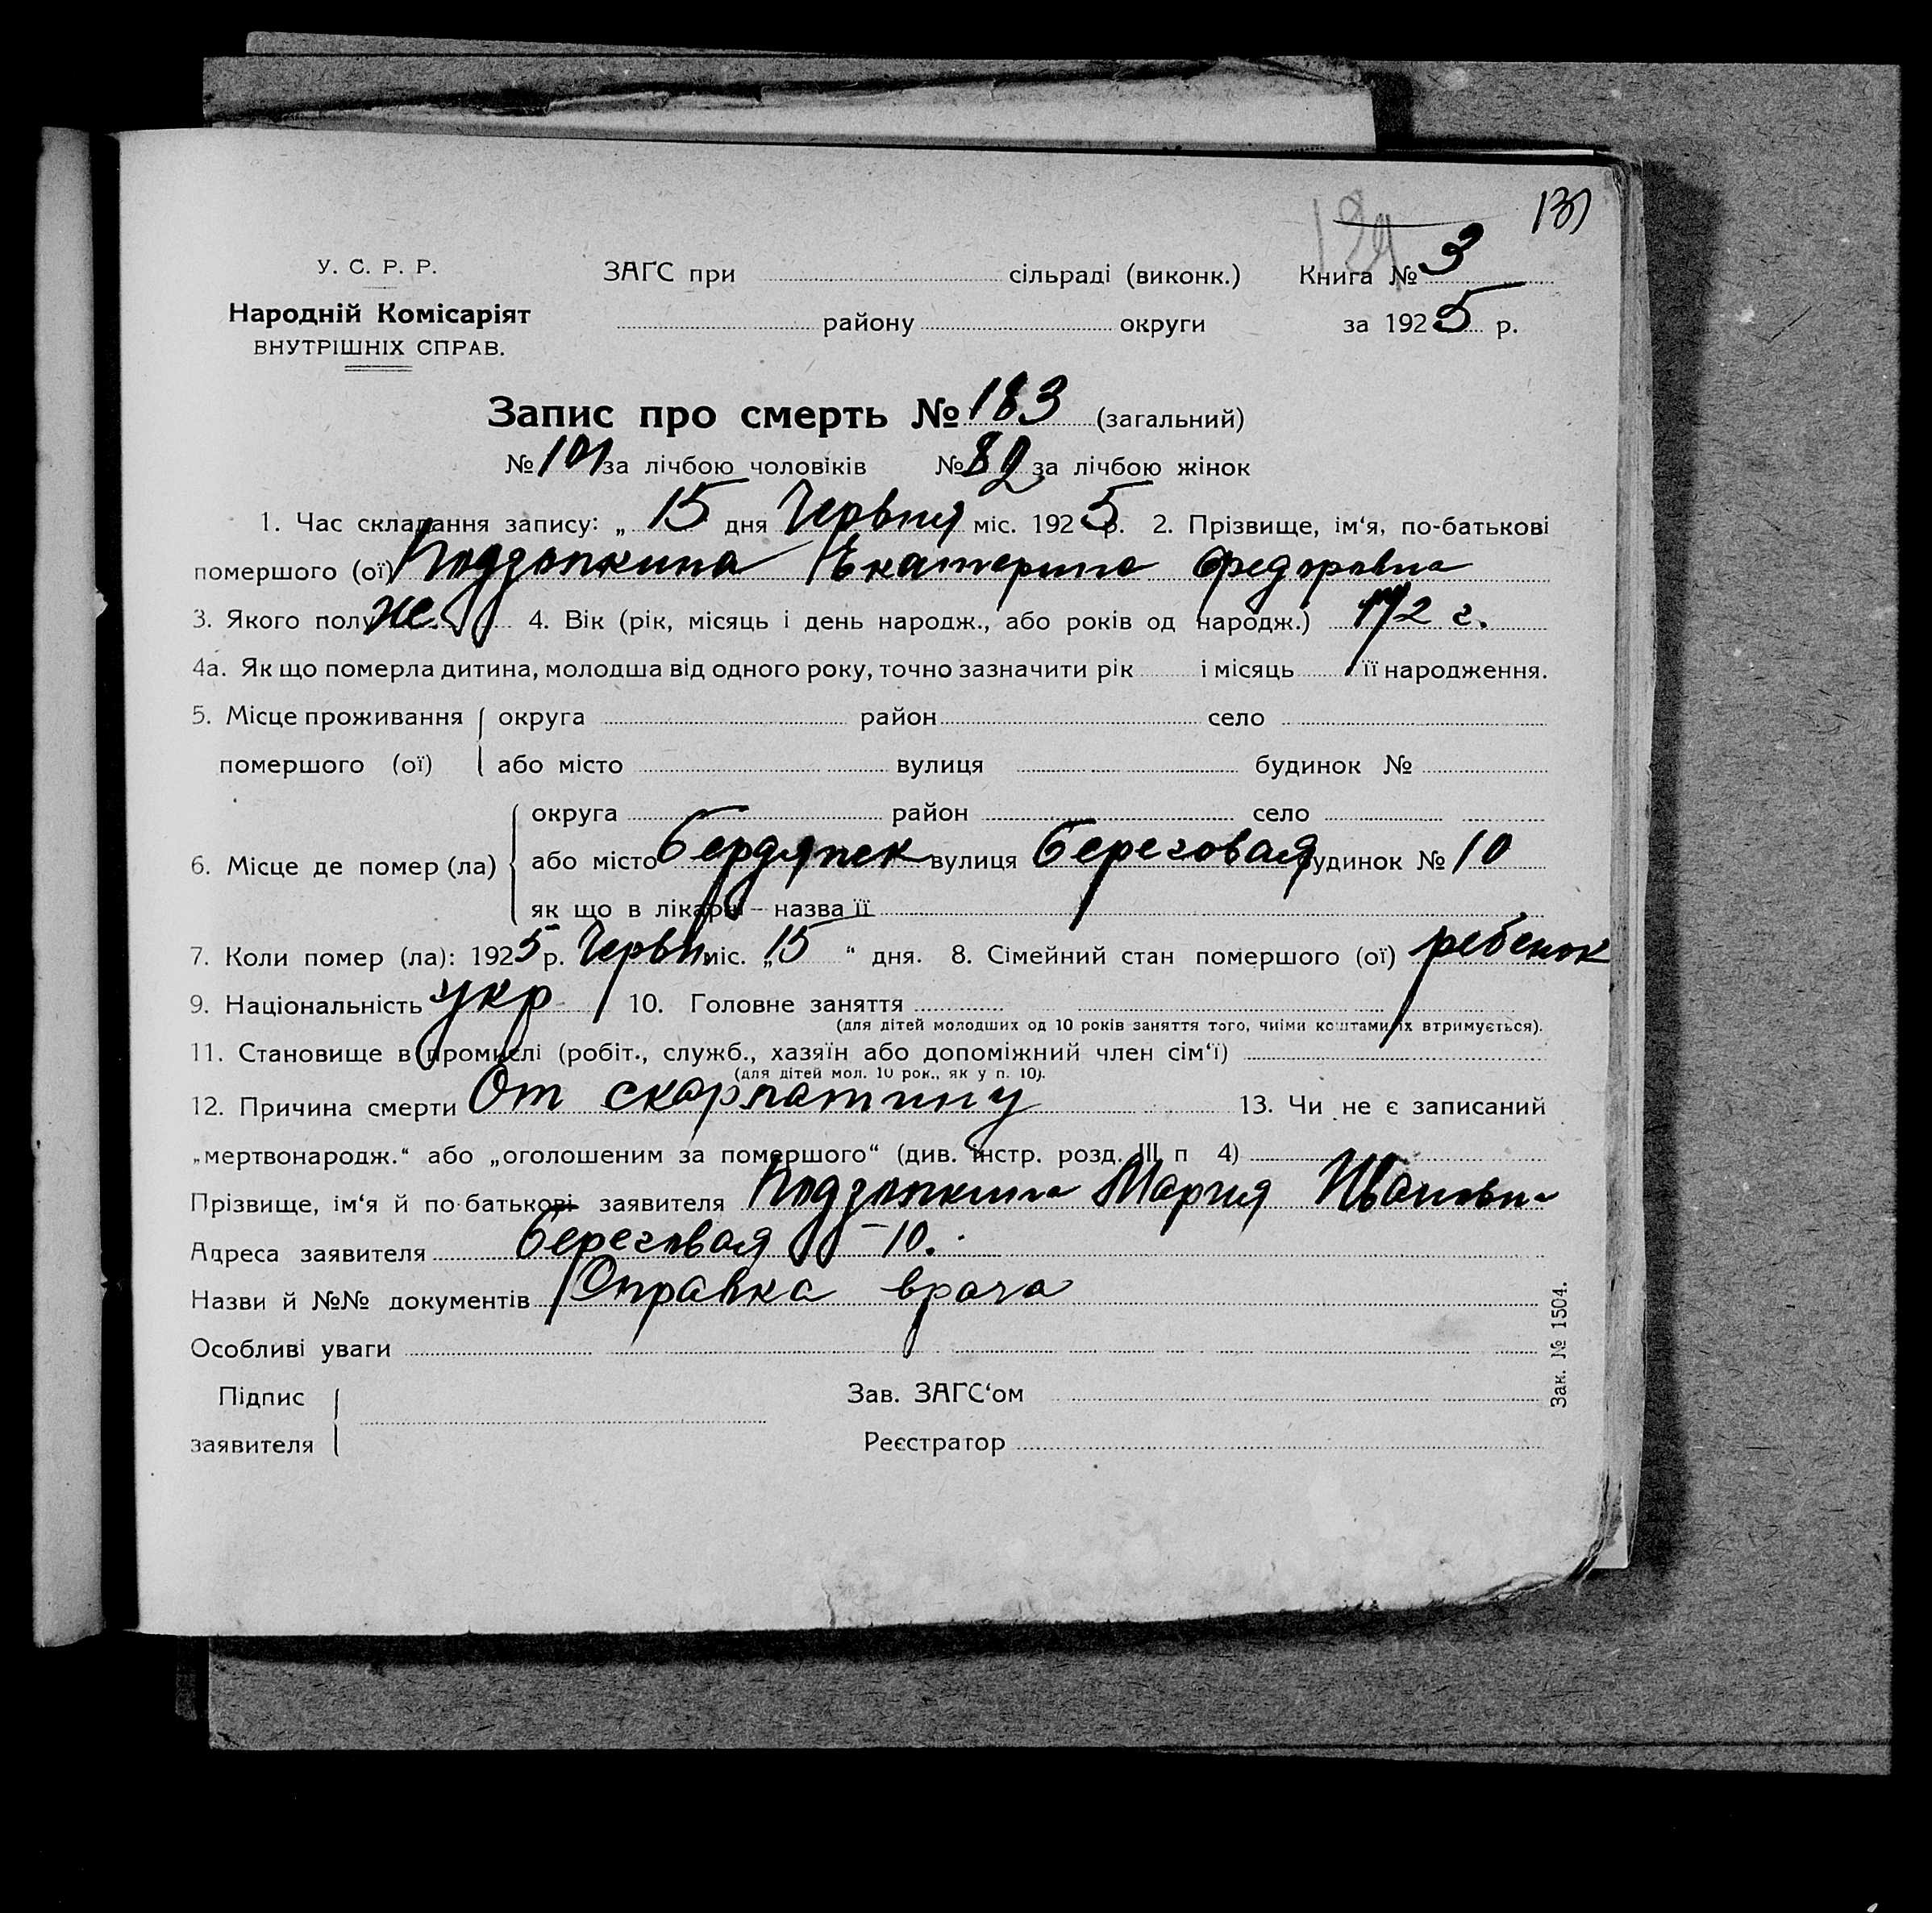 131
129
У. С. Р. Р. ЗАГС при сільраді (виконк.) Книга № 3
Народній Комісаріят району округи за 1925 р.
ВНУТРІШНІХ СПРАВ.
Запис про смерть № 183 (загальний)
№ 101 за лічбою чоловіків № 82 за лічбою жінок
1. Час складання запису: „ 15 дня Червня міс. 1925 р. 2. Прізвище, ім‘я, по-батькові
помершого (ої) Екатерина Федоровна
3. Якого полу же. 4. Вік (рік, місяць і день народж., або років од народж.) 1 1/2 г.
4а. Як що померла дитина, молодша від одного року, точно зазначити рік і місяць її народження.
5. Місце проживання округа район село
помершого (ої) або місто вулиця будинок №
округа район село
6. Місце де помер (ла) або місто Бердянск вулиця Береговая будинок № 10
як що в лікарні – назва її
7. Коли помер (ла): 1925 р. Червн. міс. „ 15 “ дня. 8. Сімейний стан помершого (ої) ребенок
9. Національність укр 10. Головне заняття
(для дітей молодших од 10 років заняття того, чиїми коштами їх втримується).
11. Становище в промислі (робіт., служб., хазяїн або допоміжний член сім‘ї)
(для дітей мол. 10 рок., як у п. 10).
12. Причина смерти От скарлатину 13. Чи не є записаний
„мертвонародж.“ або „оголошеним за помершого“ (див. інстр. розд. III п 4)
Прізвище, ім‘я й по-батькові заявителя Мария Ивановна
Адреса заявителя Береговая – 10.
Назви й №№ документів Справка врача
Особливі уваги
Підпис Зав. ЗАГС‘ом
заявителя Реєстратор
Зак. № 1504.